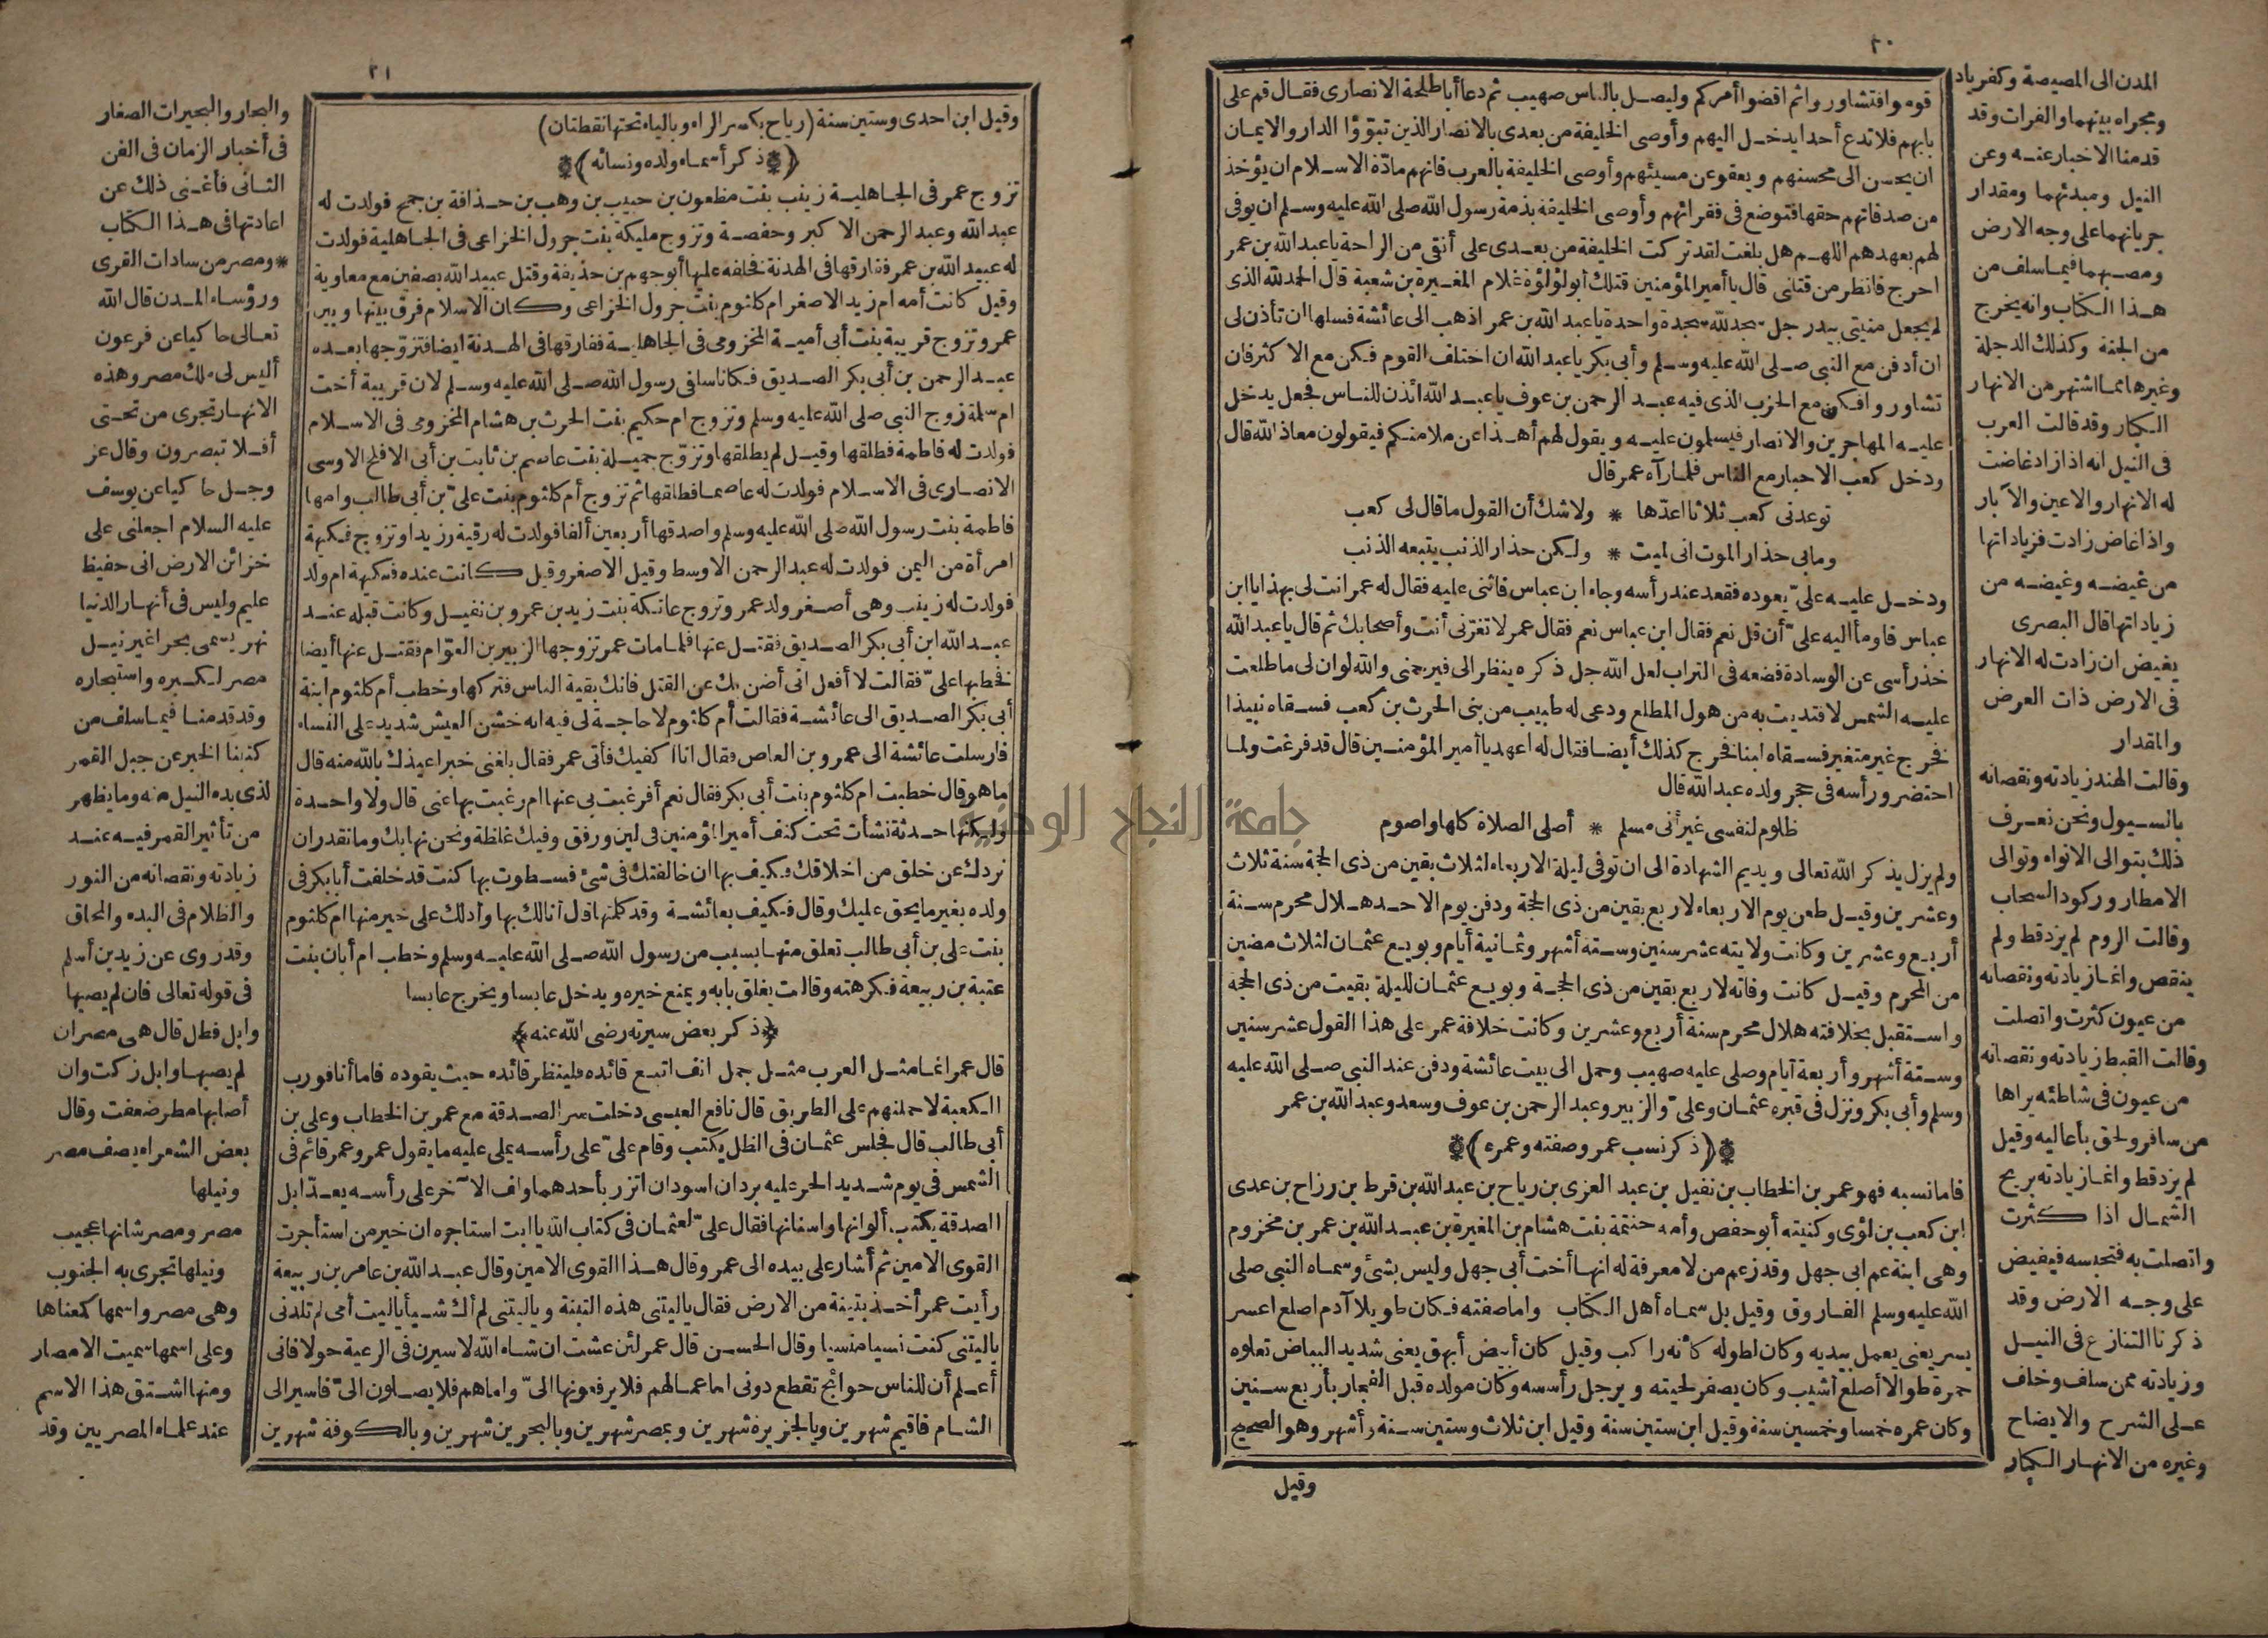 ٢٠
قوموا فتشاوروا ثم اقضوا أمركم وليصل بالناس صهيب ثم دعا أبا طلحة الانصارى فقال قم على
بابهم فلا تدع أحدا يدخل اليهم وأوصى الخليفة من بعدى بالانصار الذين تبوّؤا الدار والايمان
ان يحسن الى محسنهم ويعفو عن مسيئهم وأوصى الخليفة بالعرب فانهم مادّة الاسلام ان يؤخذ
من صدقاتهم حقها فتوضع فى فقرائهم وأوصى الخليفة بذمة رسول الله صلى الله عليه وسلم ان يوفى
لهم بعهدهم اللهم هل بلغت لقد تركت الخليفة من بعدى على أنقى من الراحة يا عبد الله بن عمر
اخرج فانظر من قتلنى قال يا أمير المؤمنين قتلك أبو لؤلؤة غلام المغيرة بن شعبة قال الحمد لله الذى
لم يجعل منيتى بيد رجل سجد لله سجدة واحدة يا عبد الله بن عمر اذهب الى عائشة فسلها ان تأذن لى
ان أدفن مع النبى صلى الله عليه وسلم وأبى بكر يا عبد الله ان اختلف القوم فكن مع الاكثر فان
تشاوروا فكن مع الحزب الذى فيه عبد الرحمن بن عوف يا عبد الله ائذن للناس فجعل يدخل
عليه المهاجرين والانصار فيسلمون عليه ويقول لهم أهذا عن ملا منكم فيقولون معاذ الله قال
ودخل كعب الاحبار مع الناس فلما رآه عمر قال
توعدنى كعب ثلاثا اعدّها * ولا شك أن القول ما قال لى كعب
وما بى حذار الموت انى لميت * ولكن حذار الذنب يتبعه الذنب
ودخل عليه علىّ يعوده فقعد عند رأسه وجاء ابن عباس فاثنى عليه فقال له عمر انت لى بهذا يا ابن
عباس فاومأ اليه علىّ أن قل نعم فقال ابن عباس نعم فقال عمر لا تغرّنى أنت وأصحابك ثم قال يا عبد الله
خذ رأسى عن الوسادة فضعه فى التراب لعل الله جل ذكره ينظر الى فيرحمنى والله لو ان لى ما طلعت
عليه الشمس لافتديت به من هول المطلع ودعى له طبيب من بنى الحرث بن كعب فسقاه نبيذا
فخرج غير متغير فسقاه لبنا فخرج كذلك أيضا فقال له اعهد يا أمير المؤمنين قال قد فرغت ولما
احتضر ورأسه فى حجر ولده عبد الله قال
ظلوم لنفسى غير أنى مسلم * أصلى الصلاة كلها واصوم
ولم يزل يذكر الله تعالى ويديم الشهادة الى ان توفى ليلة الاربعاء لثلاث بقين من ذى الحجة سنة ثلاث
وعشرين وقيل طعن يوم الاربعاء لاربع بقين من ذى الحجة ودفن يوم الاحد هلال محرم سنة
أربع وعشرين وكانت ولايته عشر سنين وستة أشهر وثمانية أيام وبويع عثمان لثلاث مضين
من المحرم وقيل كانت وفاته لاربع بقين من ذى الحجة وبويع عثمان لليلة بقيت من ذى الحجة
واستقبل بخلافته هلال محرم سنة أربع وعشرين وكانت خلافة عمر على هذا القول عشر سنين
وستة أشهر وأربعة أيام وصلى عليه صهيب وحمل الى بيت عائشة ودفن عند النبى صلى الله عليه
وسلم وأبى بكر ونزل فى قبره عثمان وعلىّ والزبير وعبد الرحمن بن عوف وسعد وعبد الله بن عمر
*(ذكر نسب عمر وصفته وعمره)*
فاما نسبه فهو عمر بن الخطاب بن نفيل بن عبد العزى بن رياح بن عبد الله بن قرط بن رزاح بن عدى
ابن كعب بن لؤى وكنيته أبو حفص وأمه حنتمة بنت هشام بن المغيرة بن عبد الله بن عمر بن مخزوم
وهى ابنة عم ابى جهل وقد زعم من لا معرفة له انها أخت أبى جهل وليس بشئ وسماه النبى صلى
الله عليه وسلم الفاروق وقيل بل سماه أهل الكتاب واما صفته فكان طويلا آدم اصلع اعسر
يسر يعنى يعمل بيديه وكان لطوله كأنه راكب وقيل كان أبيض أبهق يعنى شديد البياض تعلوه
حمرة طوالا أصلع أشيب وكان يصفر لحيته ويرجل رأسه وكان مولده قبل الفجار بأربع سنين
وكان عمره خمسا وخمسين سنة وقيل ابن ستين سنة وقيل ابن ثلاث وستين سنة وأشهر وهو الصحيح
وقيل
المدن الى المصيصة وكفرياد
ومجراه بينهما والفرات وقد
قدمنا الاخبار عنه وعن
النيل ومبدئهما ومقدار
جريانهما على وجه الارض
ومصبهما فيما سلف من
هذا الكتاب وانه يخرج
من الجنة وكذلك الدجلة
وغيرها مما اشتهر من الانهار
الكبار وقد قالت العرب
فى النيل انه اذا زاد غاضت
له الانهار والاعين والآبار
واذا غاض زادت فزياداتها
من غيضه وغيضه من
زياداتها قال البصرى
يغيض ان زادت له الانهار
فى الارض ذات العرض
والمقدار
وقالت الهند زيادته ونقصانه
بالسيول ونحن نعرف
ذلك بتوالى الانواء وتوالى
الامطار وركود السحاب
وقالت الروم لم يزد قط ولم
ينقص وانما زيادته ونقصانه
من عيون كثرت واتصلت
وقالت القبط زيادته ونقصانه
من عيون فى شاطئه يراها
من سافر ولحق بأعاليه وقيل
لم يزد قط وانما زيادته بريح
الشمال اذا كثرت
واتصلت به فتحبسه فيفيض
على وجه الارض وقد
ذكرنا التنازع فى النيل
وزيادته ممن سلف وخلف
على الشرح والايضاح
وغيره من الانهار الكبار
٢١
وقيل ابن احدى وستين سنة (رياح بكسر الراء وبالياء تحتها نقطتان)
*(ذكر أسماء ولده ونسائه)*
تزوج عمر فى الجاهلية زينب بنت مظعون بن حبيب بن وهب بن حذافة بن جمح فولدت له
عبد الله وعبد الرحمن الاكبر وحفصة وتزوج مليكة بنت جرول الخزاعى فى الجاهلية فولدت
له عبيد الله بن عمر ففارقها فى الهدنة فخلفه عليها أبو جهم بن حذيفة وقتل عبيد الله بصفين مع معاوية
وقيل كانت أمه ام زيد الاصغر ام كلثوم بنت جرول الخزاعى وكان الاسلام فرق بينها وبين
عمر وتزوج قريبة بنت أبى أمية المخزومى فى الجاهلية ففارقها فى الهدنة ايضا فتزوّجها بعده
عبد الرحمن بن أبى بكر الصديق فكانا سلفى رسول الله صلى الله عليه وسلم لان قريبة أخت
ام سلمة زوج النبى صلى الله عليه وسلم وتزوج ام حكيم بنت الحرث بن هشام المخزومى فى الاسلام
فولدت له فاطمة فطلقها وقيل لم يطلقها وتزوّج جميلة بنت عاصم بن ثابت بن أبى الافلح الاوسى
الانصارى فى الاسلام فولدت له عاصما فطلقها ثم تزوج أم كلثوم بنت علىّ بن أبى طالب وامها
فاطمة بنت رسول الله صلى الله عليه وسلم واصدقها أربعين ألفا فولدت له رقية وزيدا وتزوج فكيهة
امرأة من اليمن فولدت له عبد الرحمن الاوسط وقيل الاصغر وقيل كانت عنده فكيهة ام ولد
فولدت له زينب وهى أصغر ولد عمر وتزوج عاتكة بنت زيد بن عمرو بن نفيل وكانت قبله عند
عبد الله ابن أبى بكر الصديق فقتل عنها فلما مات عمر تزوجها الزبير بن العوّام فقتل عنها أيضا
فخطبها علىّ فقالت لا أفعل انى أضن بك عن القتل فانك بقية الناس فتركها وخطب أم كلثوم ابنة
أبى بكر الصديق الى عائشة فقالت أم كلثوم لا حاجة لى فيه انه خشن العيش شديد على النساء
فارسلت عائشة الى عمرو بن العاص فقال انا اكفيك فأتى عمر فقال بلغنى خبر اعيذك بالله منه قال
ما هو قال خطبت ام كلثوم بنت أبى بكر فقال نعم أفرغبت بى عنها ام رغبت بها عنى قال ولا واحدة
ولكنها حدثة نشأت تحت كنف أمير المؤمنين فى لين ورفق وفيك غلظة ونحن نهابك وما نقدر ان
نردك عن خلق من اخلاقك فكيف بها ان خالفتك فى شئ فسطوت بها كنت قد خلفت أبا بكر فى
ولده بغير ما يحق عليك وقال فكيف بعائشة وقد كلمتها قال أنا لك بها وأدلك على خير منها ام كلثوم
بنت على بن أبى طالب تعلق منها بسبب من رسول الله صلى الله عليه وسلم وخطب ام أبان بنت
عتبة بن ربيعة فكرهته وقالت يغلق بابه ويمنع خيره ويدخل عابسا ويخرج عابسا
*(ذكر بعض سيرته رضى الله عنه)*
قال عمر انما مثل العرب مثل جمل انف اتبع قائده فلينظر قائده حيث يقوده فاما أنا فورب
الكعبة لاحملنهم على الطريق قال نافع العيسى دخلت حير الصدقة مع عمر بن الخطاب وعلى بن
أبى طالب قال فجلس عثمان فى الظل يكتب وقام علىّ على رأسه يملى عليه ما يقول عمر وعمر قائم فى
الشمس فى يوم شديد الحر عليه بردان اسودان اتزر بأحدهما ولف الآخر على رأسه يعدّ ابل
الصدقة يكتب ألوانها واسنانها فقال علىّ لعثمان فى كتاب الله يا أبت استأجره ان خير من استأجرت
القوى الامين ثم أشار على بيده الى عمر وقال هذا القوى الامين وقال عبد الله بن عامر بن ربيعة
رأيت عمر أخذ تبنة من الارض فقال يا ليتنى هذه التبنة ويا ليتنى لم أك شيأ يا ليت أمى لم تلدنى
يا ليتنى كنت نسيا منسيا وقال الحسن قال عمر لئن عشت ان شاء الله لاسيرن فى الرعية حولا فانى
أعلم أن للناس حوائج تقطع دونى اما عمالهم فلا يرفعونها الىّ واما هم فلا يصلون الىّ فاسير الى
الشام فاقيم شهرين وبالجزيرة شهرين وبمصر شهرين وبالبحرين شهرين وبالكوفة شهرين
والبحار والبحيرات الصغار
فى أخبار الزمان فى الفن
الثانى فأغنى ذلك عن
اعادتها فى هذا الكتاب
*ومصر من سادات القرى
ورؤساء المدن قال الله
تعالى حاكيا عن فرعون
أليس لى ملك مصر وهذه
الانهار تجرى من تحتى
أفلا تبصرون وقال عز
وجل حاكيا عن يوسف
عليه السلام اجعلنى على
خزائن الارض انى حفيظ
عليم وليس فى أنهار الدنيا
نهر يسمى بحرا غير نيل
مصر لكبره واستبحاره
وقد قدمنا فيما سلف من
كتبنا الخبر عن جبل القمر
لذى بدء النيل منه وما يظهر
من تأثير القمر فيه عند
زيادته ونقصانه من النور
والظلام فى البدء والمحاق
وقد روى عن زيد بن أسلم
فى قوله تعالى فان لم يصبها
وابل فطل قال هى مصر ان
لم يصبها وابل زكت وان
أصابها مطر ضعفت وقال
بعض الشعراء يصف مصر
ونيلها
مصر ومصر شانها عجيب
ونيلها تجرى به الجنوب
وهى مصر واسمها كمعناها
وعلى اسمها سميت الامصار
ومنها اشتق هذا الاسم
عند علماء المصريين وقد
جامعة النجاح الوطنية